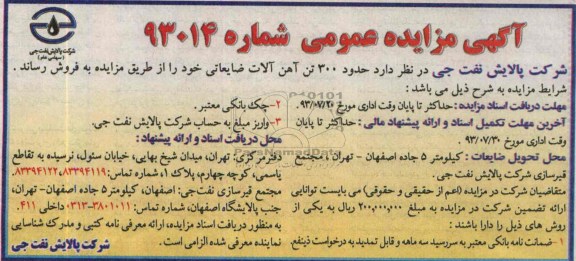 آگهی مزایده عمومی شماره ۹۳۰۱۴
شرکت پالایش نفت جی
(سهامی عام)
شرکت پالایش نفت جی در نظر دارد حدود ۳۰۰ تن آهن آلات ضایعاتی خود را از طریق مزایده به فروش رساند .
شرایط مزایده به شرح ذیل می باشد :
مهلت دریافت اسناد مزایده : حداکثر تا پایان وقت اداری مورخ ۹۳/۰۷/۲۰.
آخرین مهلت تکمیل اسناد و ارائه پیشنهاد مالی : حداکثر تا پایان
وقت اداری مورخ ۹۳/۰۷/۳۰ .
محل تحویل ضایعات : کیلومتر ۵ جاده اصفهان - تهران ، مجتمع
قیرسازی شرکت پالایش نفت جی.
متقاضیان شرکت در مزایده (اعم از حقیقی و حقوقی) می بایست توانایی
ارائه تضمین شرکت در مزایده به مبلغ ۲۰۰,۰۰۰,۰۰۰ ریال به یکی از
روش های ذیل را دارا باشند :
۱- ضمانت نامه بانکی معتبر به سررسید سه ماهه و قابل تمدید به درخواست ذینفع.
۲-چک بانکی معتبر .
۳-واریز مبلغ به حساب شرکت پالایش نفت جی.
محل دریافت اسناد و ارائه پیشنهاد :
دفتر مرکزی: تهران، میدان شیخ بهایی، خیابان سئول، نرسیده به تقاطع
یاسمی، کوچه چهارم، پلاک ۱، شماره تماس: ۸۳۳۹۴۱۱۹-۸۳۳۹۴۱۲۲.
مجتمع قیرسازی نفت جی: اصفهان، کیلومتر ۵ جاده اصفهان- تهران،
جنب پالایشگاه اصفهان، شماره تماس: ۳۸۰۱۰۱۱-۰۳۱۳ داخلی ۴۱۱.
به منظور دریافت اسناد مزایده، ارائه معرفی نامه کتبی و مدرک شناسایی
نماینده معرفی شده الزامی است .
شرکت پالایش نفت جی